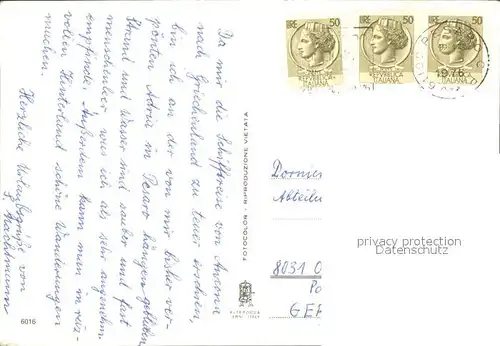 Da mir die Schiffsreise von Ancona
nach Griechenland zu teuer erschien,
bin ich an der von mir bisher ver-
pönten Adria in Pesaro hängen geblieben.
Strand und Wasser sind sauber und fast
menschenleer was ich als sehr angenehm
empfinde. Außerdem kann man im reiz-
vollen Hinterland schöne Wanderungen
machen.
Herzliche Urlaubsgrüße von
6016
FOTOCOLOR - RIPRODUZIONE VIETATA
LIRE 50
REPUBBLICA
ITALIANA
LIRE 50
REPUBBLICA
ITALIANA
LIRE 50
REPUBBLICA
ITALIANA
1976
Dornie
Abteilu
8031 O
Po
GER
ALTEROCCA
TERNI ITALY
privacy protection
Datenschutz